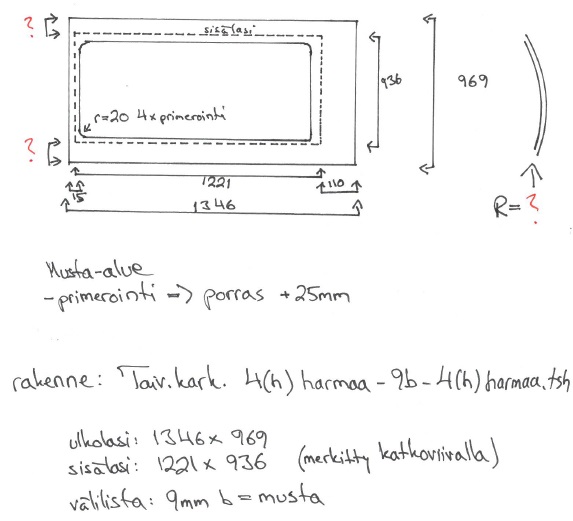 ?
sisälasi
936
969
r=20 4x primerointi
?
1221
110
15
1346
R=?
Musta-alue
-primerointi => porras +25mm
rakenne: Taiv.kark. 4(h) harmaa - 9b - 4(h) harmaa.tsh
ulkolasi: 1346 x 969
sisälasi: 1221 x 936 (merkitty katkoviivalla)
välilista: 9mm b = musta